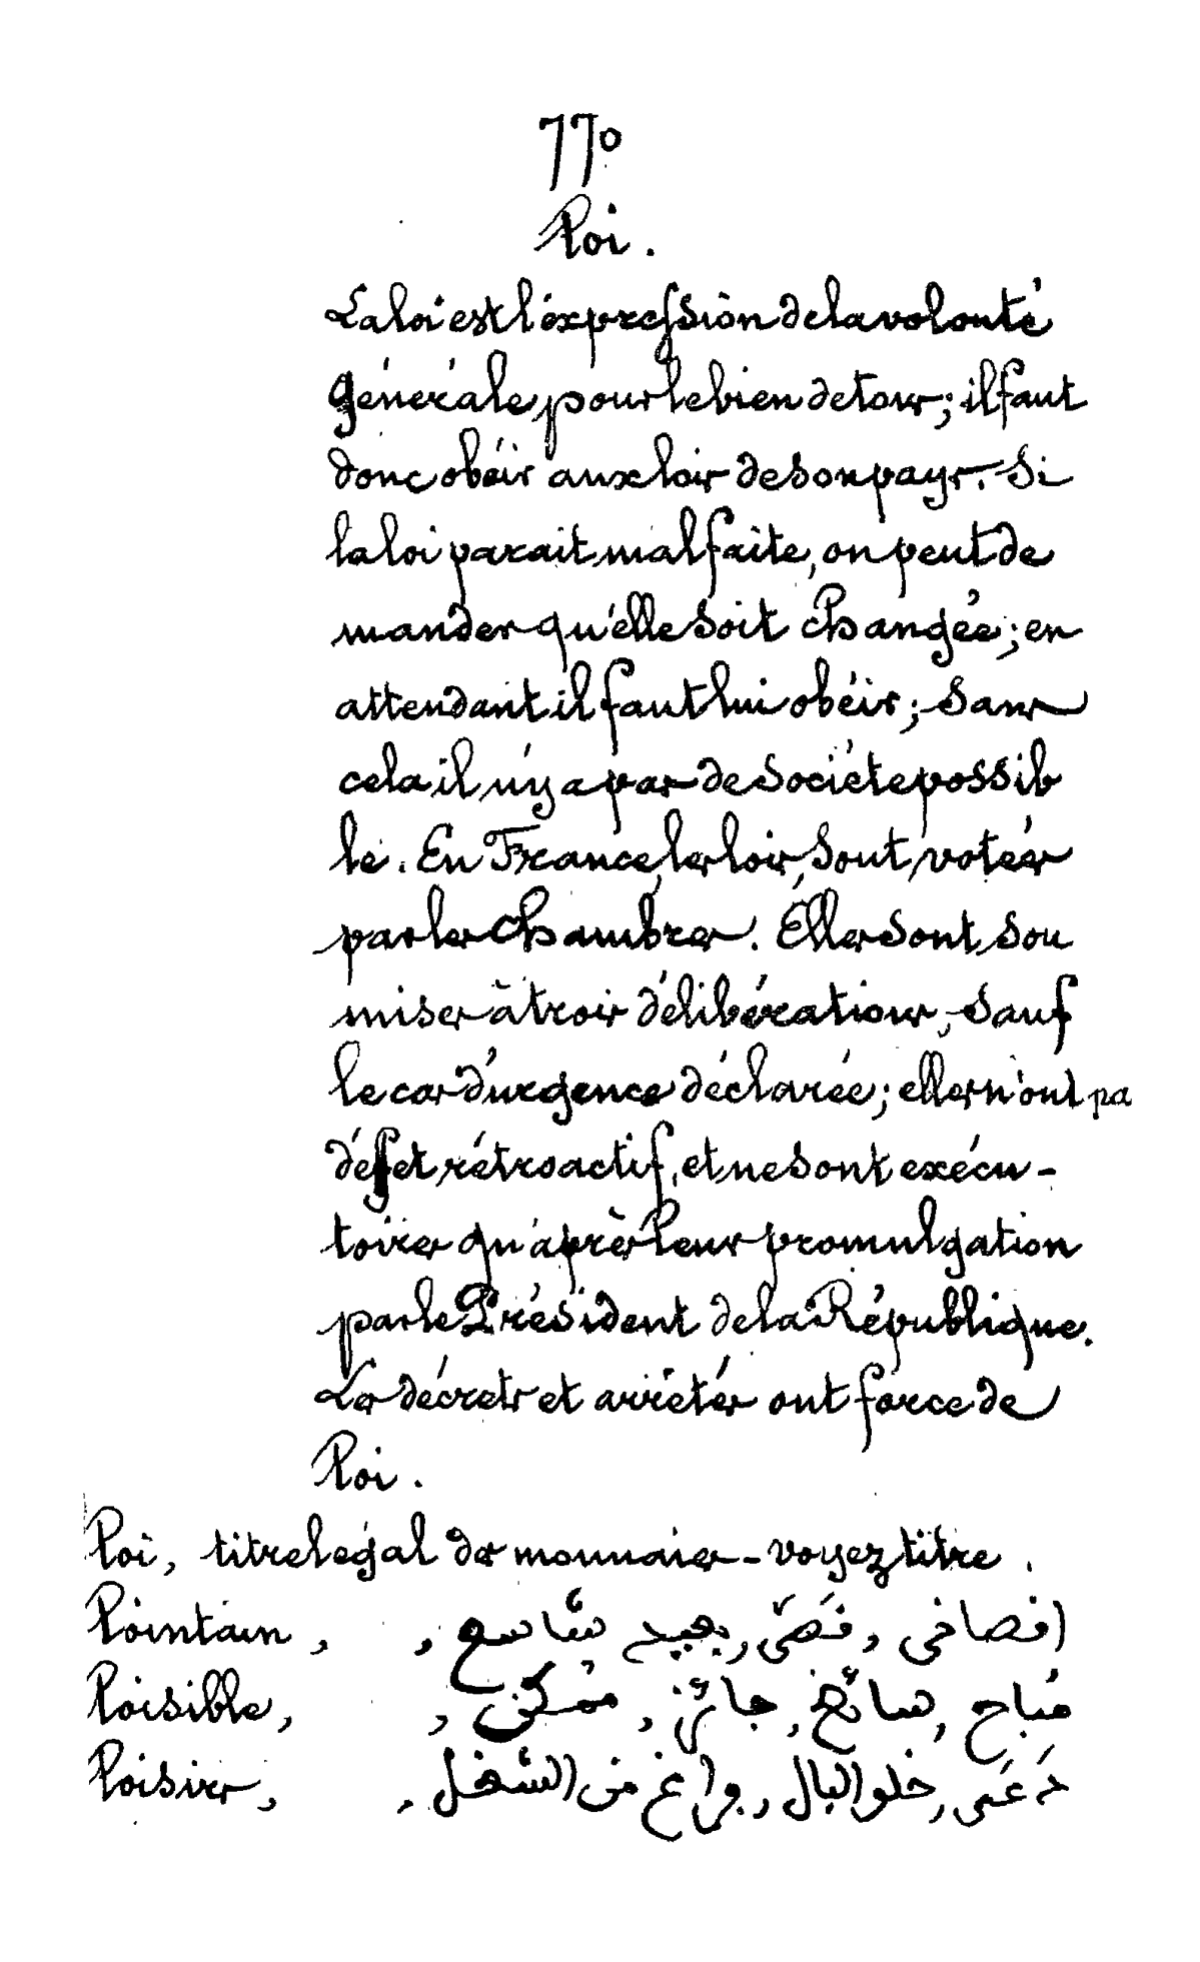 770
Loi.
La loi est l'éxpression de la volonté
générale, pour le bien de tous; il faut
donc obéir aux lois de son pays. Si
la loi parait mal faite, on peut de
mander qu'elle soit changée; en
attendant il faut lui obéir; sans
cela il n'y a pas de société possib
le. En France, les lois, sont, votées
par les Chambres. Elles sont, sou
mises à trois délibérations, sauf
le cas d'urgence déclarée; elles n'ont pa
d'éffet, rétroactif, et ne sont exécu-
toires qu'après leur promulgation
par le Président de la République.
Les décrets et arrêtés ont force de
Loi.
Loi, titre légal des monnaies - voyez titre.
Lointain, اقصاخى, قَصَىّ, بعيد شاسع,
Loisible, مُباح, سائغ, جائز, ممُكن,
Loisirs, خلو البال, فراغ من الشغل,